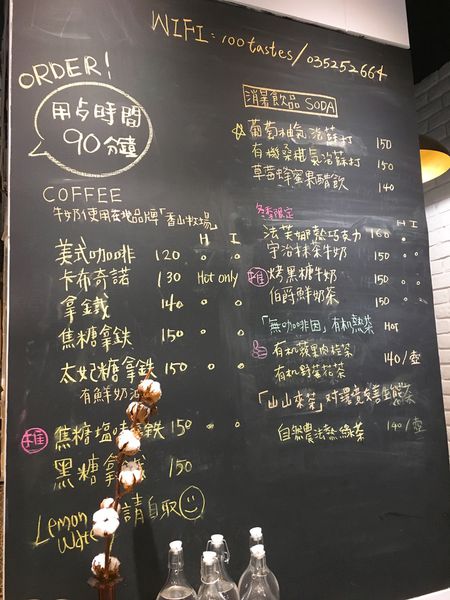 WIFI: 100tastes/035252664
ORDER!
用点時間
90分鐘
COFFEE
牛奶使用在地品牌「香山牧場」
H I
美式咖啡 120 o o
卡布奇諾 130 Hot only
拿鐵 140 o o
焦糖拿鉄 150 o o
太妃糖拿鉄 150 o o
有鮮奶油
推 焦糖塩味 鉄 150 o o
黑糖拿鐵 150
Lemon
Water 請自取
消暑飲品 SODA
☆葡萄柚氣泡蘇打 150
有機桑椹氣泡蘇打 150
草莓蜂蜜果醋飲 140
冬季限定 H I
法芙娜熱巧克力 160 o
宇治抹茶牛奶 150 o o
推 烤黑糖牛奶 150 o o
伯爵鮮奶茶 150 o o
「無咖啡因」有机熱茶 Hot
有机蘋果肉桂茶 140/壺
有机野莓花茶
「山山來茶」対環境友善生態茶
自然農法蒸綠茶 140/壺